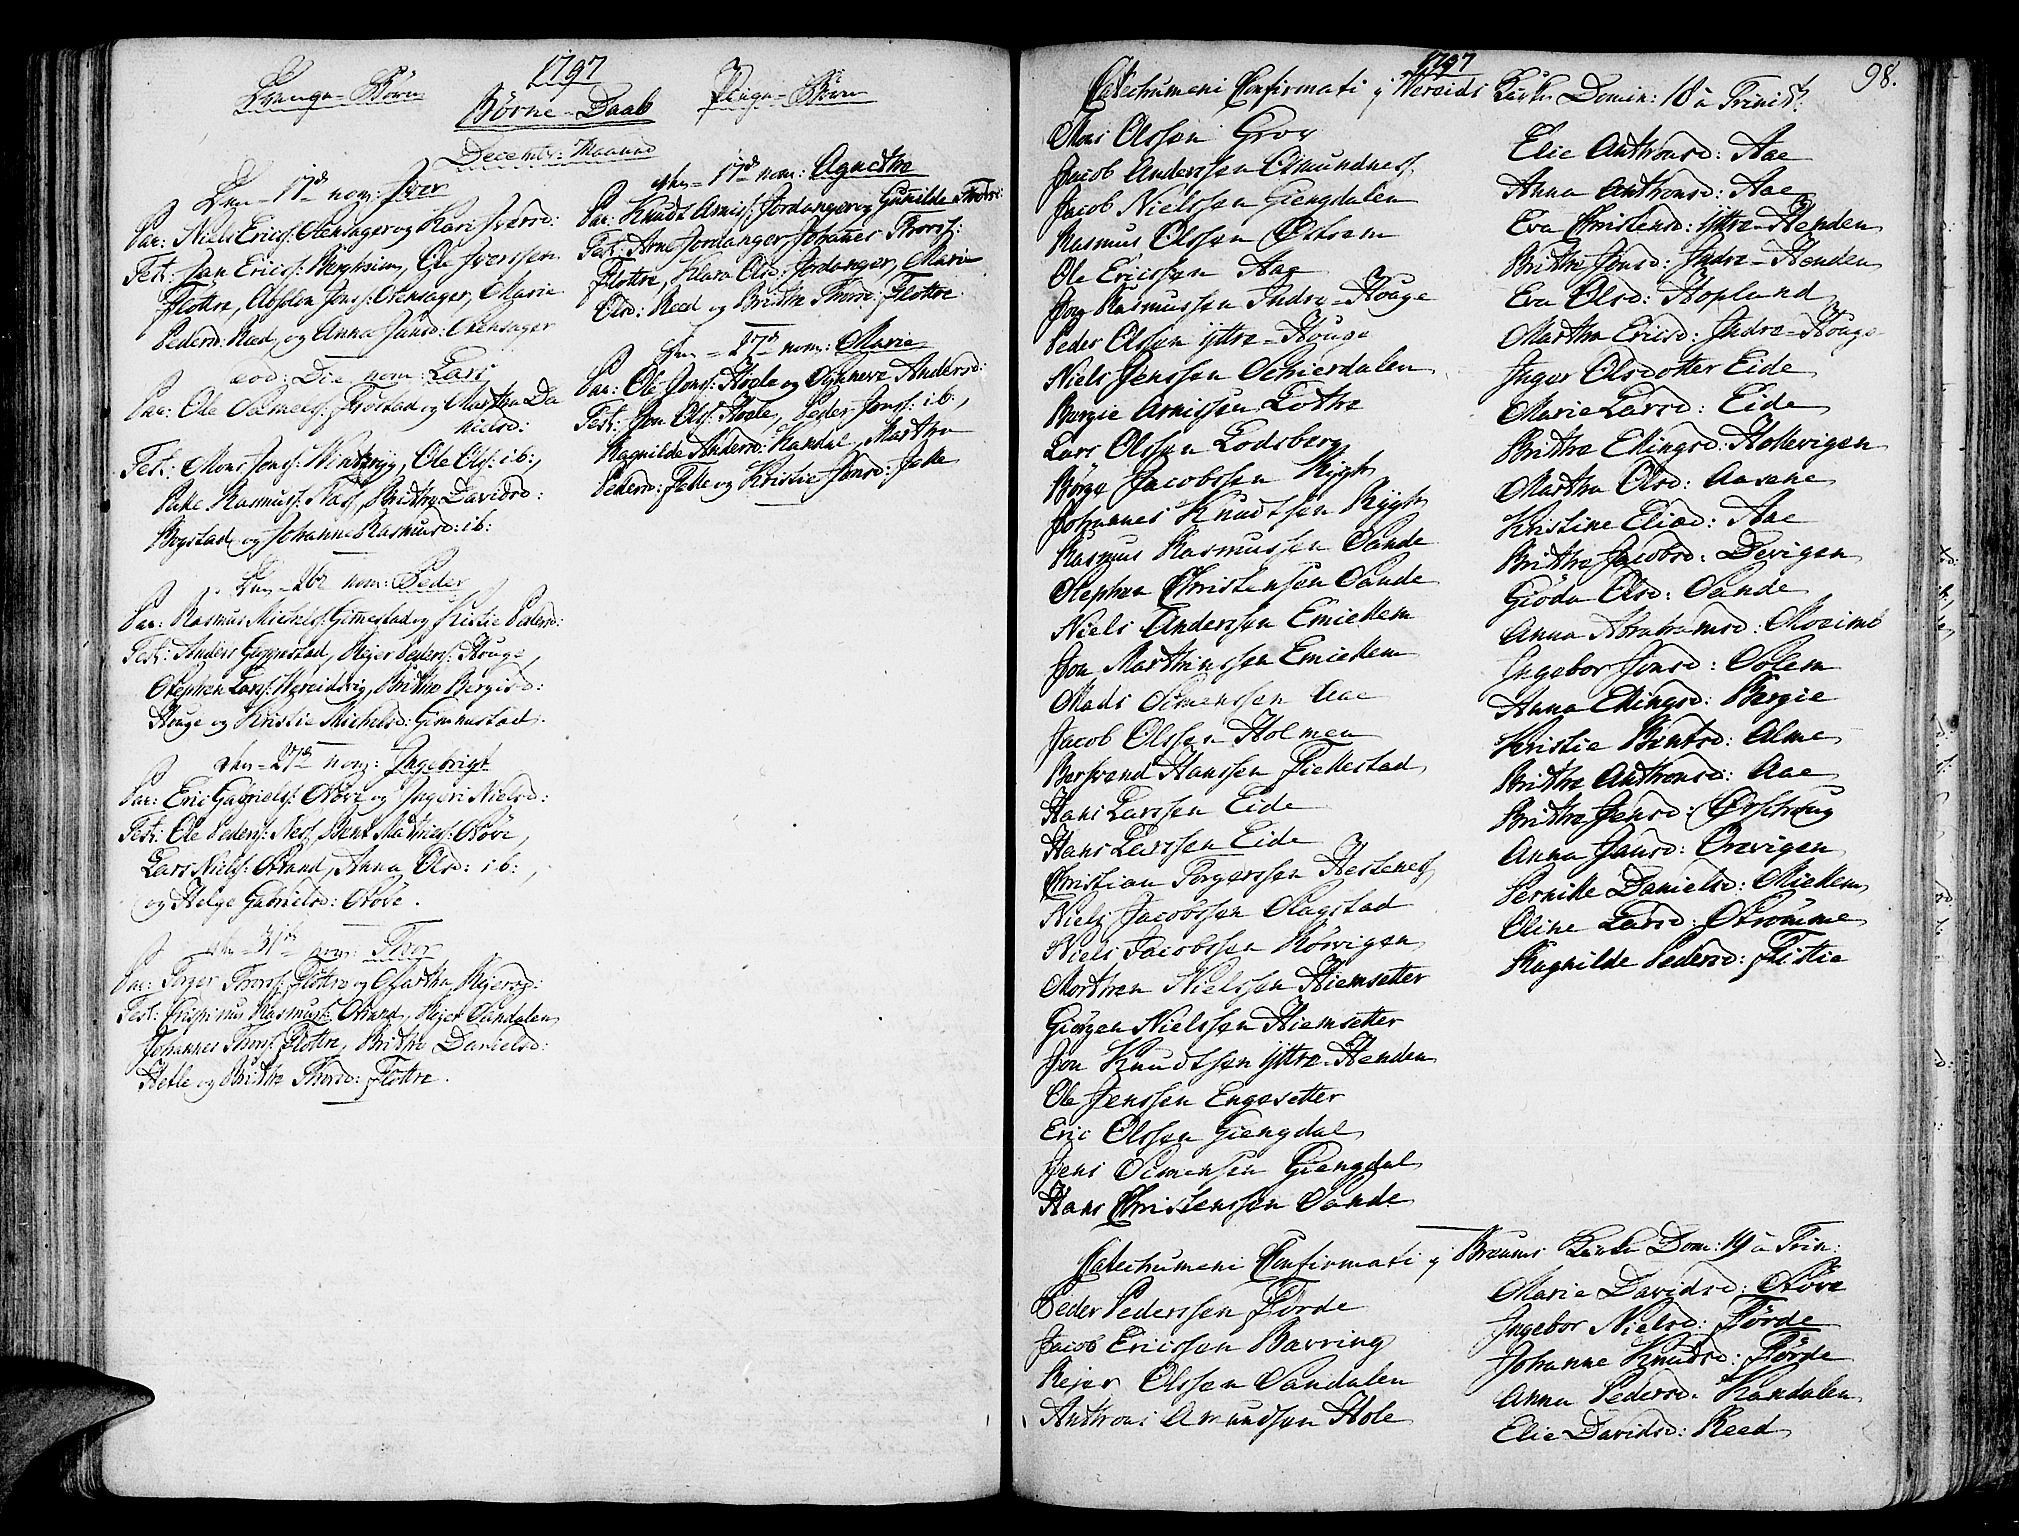 1797
Drenge-Børn
Børne-Daab
Pige-Børn
Decembr: Maaned
Dn- 17de nom: Iver
Par: Niels Ericss: Stensager og Kari Iversd:
Test: Jan Ericss: Bergheim, Ole Iverssen
Fløttre, Absolon Jonss: Stensager, Marie
Pedersd: Reed, og Anna Jansd: Stensager
eod: Die nom: Lars
Par: Ole Samuelss: Frøstad og Martha Da
nielsd:
Test: Mons Jonss: Ole Olss: ib:,
Peke Rasmuss: Næss, Brithe Davidsd:
Bogstad og Johanne Rasmusd: ib:
Dn- 26de nom: Peder
Par: Rasmus Michelss: Gimestad og Kristie Pedersd:
Test: Anders Gimmestad, Rejer Pederss: Houge,
Stephen Larss: Hereidsvig, Brithe Bergisd:
Houge og Kristie Michelsd: Gimmestad.
dn- 27de nom: Ingebrigt
Par: Eric Gabrielss: Støve og Ingeri Nielsd:
Test: Ole Pederss: Ness, Bent Støve,
Lars Nielss: Strand, Anna Olsd: ib:,
og Helge Gabrielsd: Støve.
dn- 31te nom: Thor
Par: Torger Thorss: Fløttre og Martha Rejersd:
Test: Crispinus Rasmuss: Strand, Rejer Sandalen
Johannes Thorss: Fløttre, Brithe Danielsd:
Hetle og Brithe Thorsd: Fløttre.
dn- 17de nom: Agnethe
Par: Knudt Arniss: Jordanger og Gunilde Thorsd:
Test: Arne Jordanger, Johannes Thorss:
Fløttre, Klara Olsd: Jordanger, Marie
Olsd: Reed og Brithe Thorsd: Fløttre.
dn- 27de nom: Marie
Par: Ole Jonss: Hoele og Synneve Andersd:
Test: Jon Olss: Hoele, Peder Jonss: ib:,
Ragnilde Andersd: Kandal, Martha
Pedersd: Felle og Kristie Jonsd: Felle
1797
98.
Catechumeni Confirmati i Vereids Kirke Domin: 18 à Trinit:
Mons Olssen Grov
Jacob Anderssen Osmundness,
Jacob Nielssen Giengdalen
Rasmus Olssen Østrem
Ole Ericssen Aae
Jon Rasmussen Indre-Houge
Peder Olssen Yttre-Houge
Niels Jenssen Schierdalen
Bergie Arnissen Lothe
Lars Olssen Lodsberg
Børge Jacobssen Rygh
Johannes Knudtsen Rygh
Rasmus Rasmussen Sande
Stephen Christensen Sande
Niels Anderssen Emickem
Jon Marthinssen Emickem
Mads Simenssen Aae
Jacob Olssen Holmen
Bertrand Hanssen Fiellestad
Hans Larssen Eide
Hans Larssen Eide
Christian Torgerssen Hestenes
Niels Jacobssen Ragstad
Niels Jacobssen Rørvigen
Morthen Nielssen Hiemsetter
Giørgen Nielssen Hiemsetter
Jon Knudtssen Yttre-Henden
Ole Jenssen Engesetter
Eric Olssen Giengdal
Jens Simensen Giengdal
Hans Christenssen Sande
Elie Anthonsd: Aae
Anna Anthonsd: Aae
Eva Christensd: Yttre-Henden
Brithe Jonsd: Indre-Henden
Eva Olsd: Hopland
Martha Ericsd: Indre-Houge
Inger Olsdotter Eide
Marie Larsd: Eide
Brithe Ellingsd: Hollevigen
Martha Olsd: Aasene
Kristine Eliæd: Aae
Brithe Jacobsd: Devigen
Gioda Olsd: Sande
Anna Abrahamsd:
Ingebor Jonsd: Solem
Anna Ellingsd: Bergie
Kristie Bentsd: Alme
Brithe Anthonsd: Aae
Brithe Jensd: Ørschoug
Anna Jansd: Brevigen
Pernille Danielsd: Mickem
Oline Larsd: Strømme
Ragnilde Pedersd: Fistie
Catechumeni Confirmati i Breums Kirke Dom: 19 à Trin:
Peder Pederssen Førde
Jacob Ericssen Bavring
Rejer Olssen Sandalen
Anthoni Amundsen Hole
Marie Davidsd: Støve
Ingebor Nielsd: Førde
Johanne Knudsd: Førde
Anna Pedersd: Kandalen
Elie Davidsd: Reed